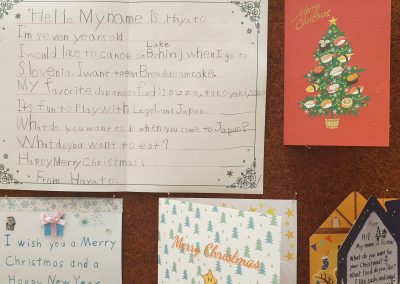 "Hello My name is Hayato.
I'm seven years old
I would like to canoe on Lake Bohinj, when I go to
Slovenia. I want to eat Bread cream cake.
My favorite Japanese food is pizza, takoyaki,
It's fun to Play with Lego and Japan.
What do you want to do when you come to Japan?
What do you want to eat?
Happy Merry Christmas!
From Hayato.
Merry
Christmas
I wish you a Merry
Christmas and a
Happy New Year
Merry Christmas
Hi!
My name is
What do you want for
your Christmas?
What food do you like?
I like sushi and